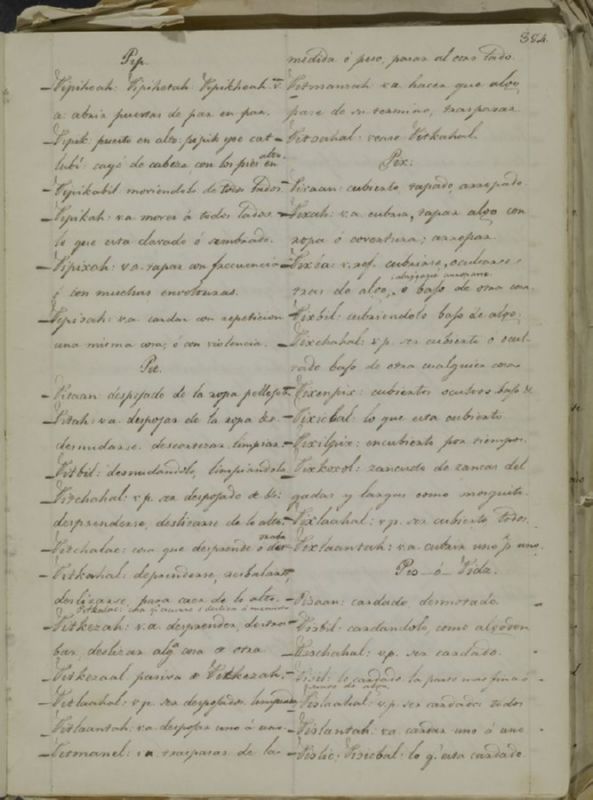 384.
Pip.
Pipihcah: Pipihetah. Pipikheah. v.
a. abrir puertas de par en par.
Pipik: puesto en alto: pipik yoc cat
lubi: cayó de cabeza, con los pies en alto.
Pipikabil moviendolo de todos lados.
Pipikah: va. mover à todos lados
lo que esta clavado ó sembrado.
Pipixah: va. tapar con frecuencia
ó con muchas envolturas.
Pipisah: va. cardar con repeticion
una misma cosa; ó con violencia.
Pit.
Pitaan: despojado de la ropa pellejo &
Pitah: va. despojar de la ropa &a.
desnudarse. descortezar. limpiar.
Pitbil: desnudandolo, limpiandolo
Pitchahal: vp. ser despojado &
desprenderse, deslizarse de lo alto.
Pitchalac: cosa que desprende ó
Pitkahal: deprenderse, resbalarse,
deslizarse, para caer de lo alto.
Pitkezah: v.a. desprender, derrum
bar, deslizar algª cosa & otra
Pitkezaal pasiva & Pitkezah.
Pitlaahal: vp. ser despojados, limpiados
Pitlaantah: va. despojar uno á uno.
Pitmanel: vn traspasar de la
medida ó peso, pasar al otro lado.
Pitmansah va. hacer que algo,
pase de su termino, traspasar.
Pitzahal: vease Pitkahal.
Pix:
Pixaan: cubierto, tapado, arropado.
Pixah: v.a. cubrir, tapar algo con
ropa ó covertura; arropar.
Pixba: v. ref. cubrirse, ocultarse
tras de algo, o bajo de otra cosa.
Pixbil: cubriendolo bajo de algo.
Pixchahal: vp. ser cubierto o ocul-
tado bajo de otra cualquier cosa
Pixenpix: cubiertos ocultos bajo &
Pixicbal: lo que esta cubierto
Pixilpix: encubierto por tiempos.
Pixkoxol: zancudo de zancas del
gadas y largas como mosquito.
Pixlaahal: vp. ser cubierto todos.
Pixlaantah: v.a. cubrir uno pr uno.
Piz ó Pida.
Pisaan: cardado desmotado.
Pisbil: cardandolo, como algodon
Pischahal: vp. ser cardado.
Pisil: lo cardado la parte mas fina ó
Pislaahal: v.p. ser cardados todos
Pislantah: va. cardar uno á uno
Pislic; Pisicbal: lo q' esta cardado.